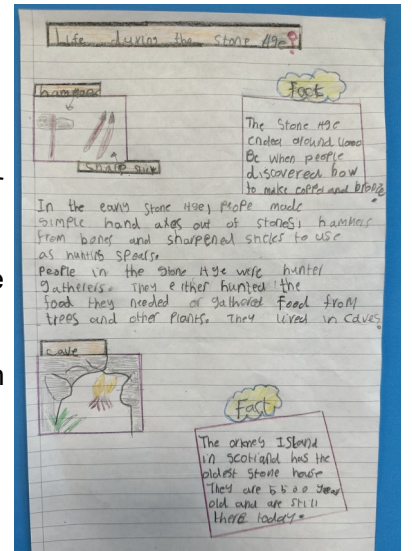 Life during the Stone Age?
hammers
Fact
The Stone Age
ended around 4000
Bc when people
discovered how
to make copper and bronze.
In the early Stone Age, people made
simple hand axes out of stones, hammers
from bones and sharpened sticks to use
as hunting spears.
People in the Stone Age were hunter
gatherers. They either hunted the
food they needed or gathered food from
trees and other plants. They lived in caves
cave
Fact
The orkney Island
in Scotland has the
oldest stone house
They are 5500 year
old and are still
there today.